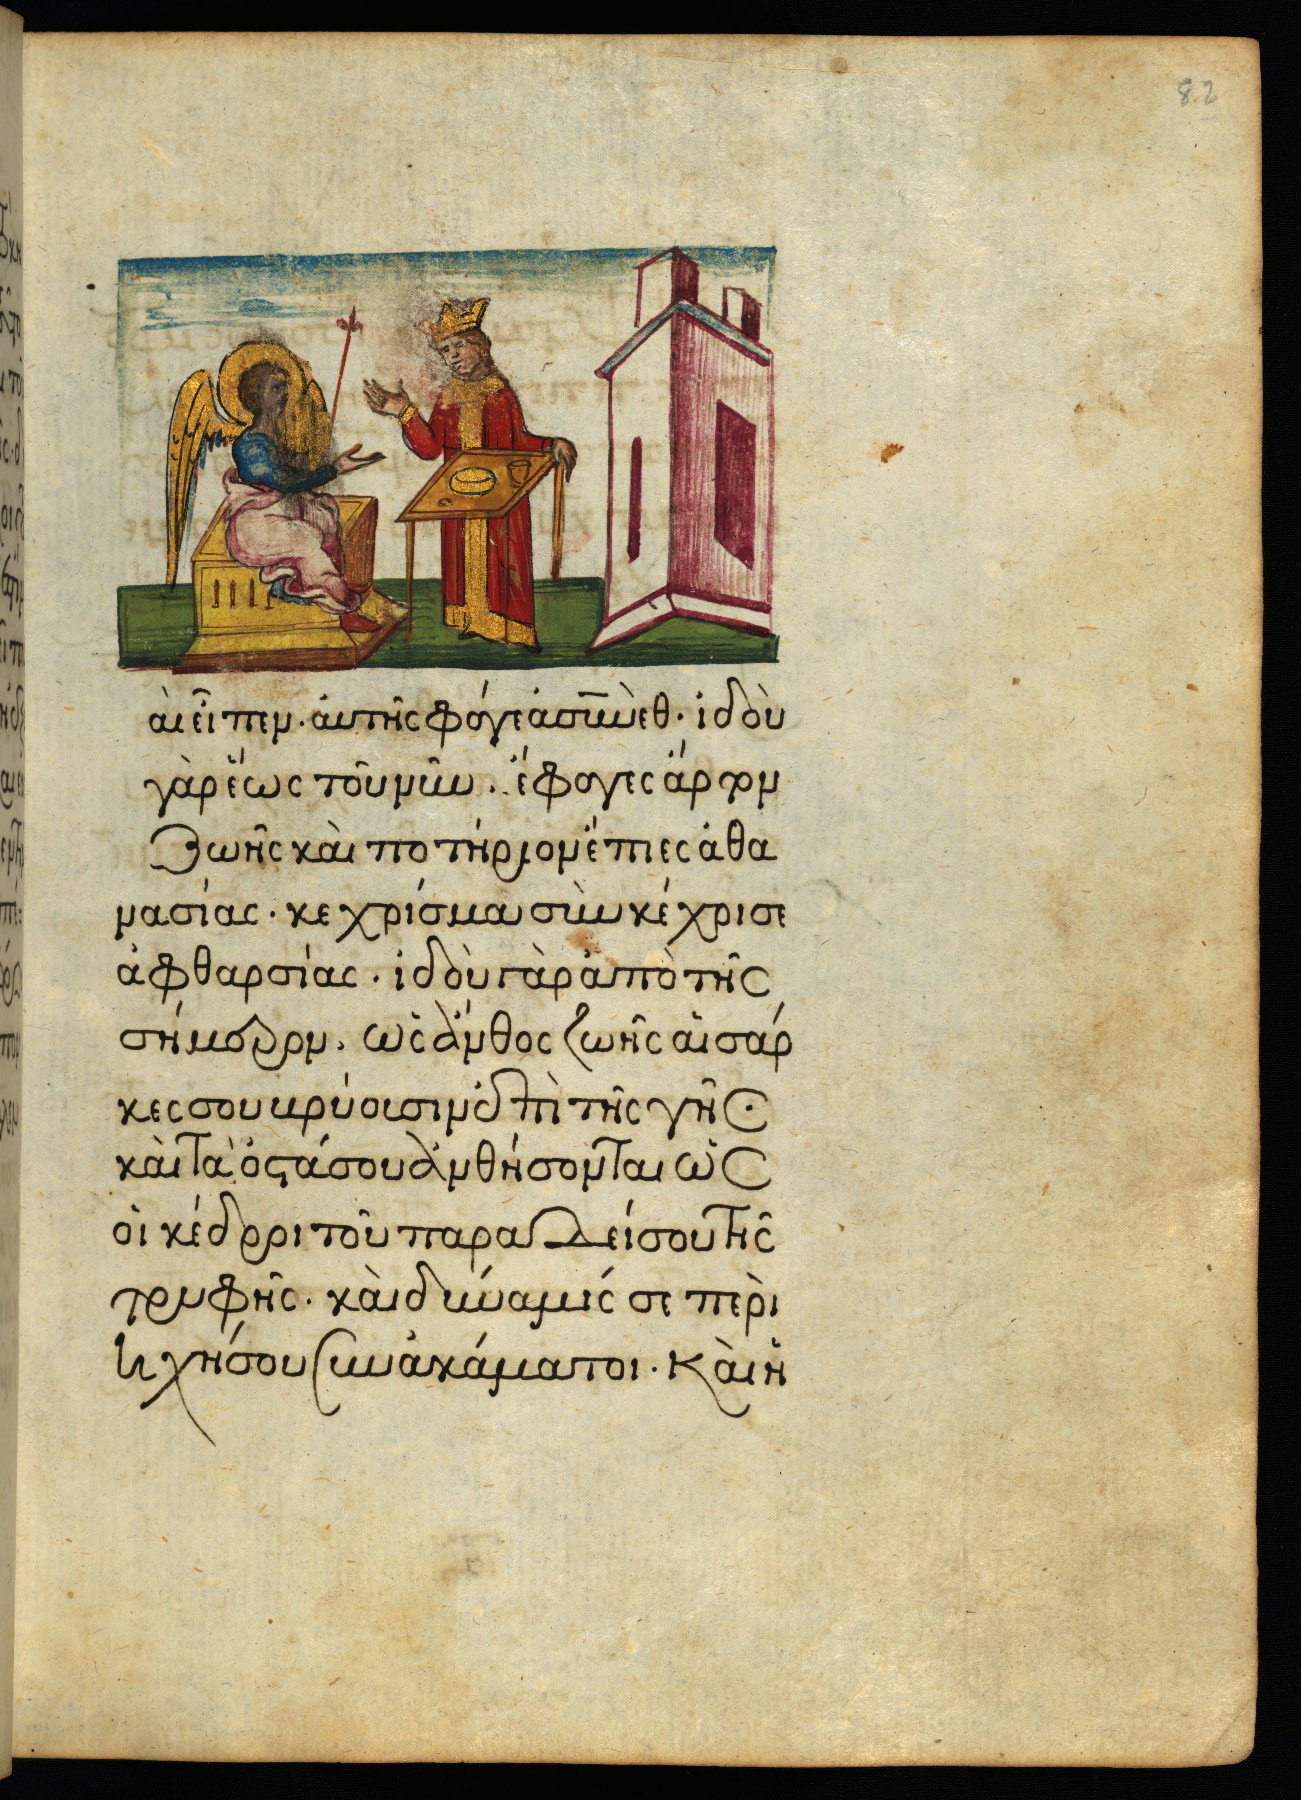 82
αι εἶπεν αὐτῆς φάγε ἀσυνὲθ· ἰδοὺ
γὰρ ἕως τοῦ νῦν. ἔφαγες ἄρτον
ζωῆς καὶ ποτήριον ἔπιες ἀθα
νασίας· κε χρίσμασιν κέχρισε
ἀφθαρσίας· ἰδοὺ γὰρ ἀπὸ τῆς
σήμερον. ὡς ἄνθος ζωῆς αἱ σάρ
κες σου βρύουσιν ἐπὶ τῆς γῆς·
καὶ τὰ ὀστά σου ἀνθήσονται ὡς
οἱ κέδροι τοῦ παραδείσου τῆς
τρυφῆς· καὶ δυνάμις σε περὶ
κυκλήσουσιν ἀκάματοι· καὶ ἡ